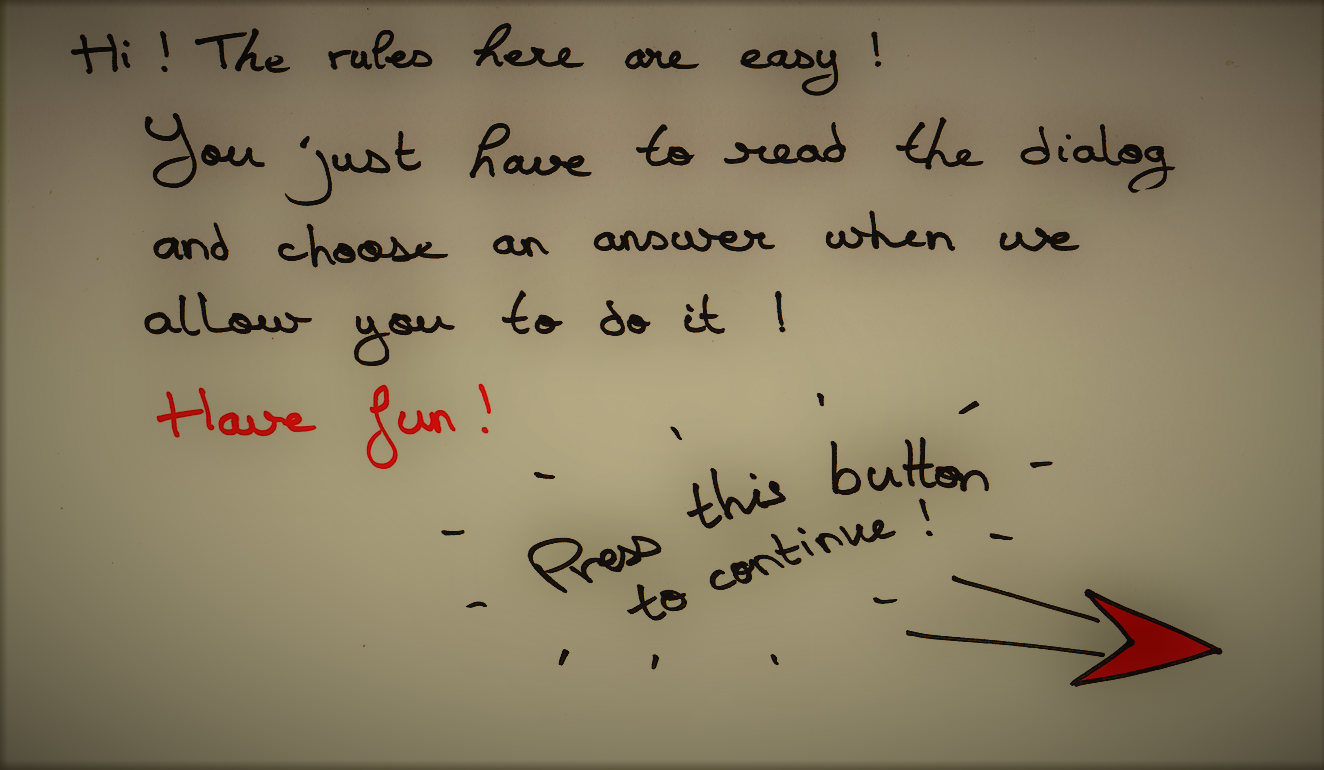 Hi ! The rules here are easy !
You just have to read the dialog
and choose an answer when we
allow you to do it !
Have fun !
Press this button
to continue !